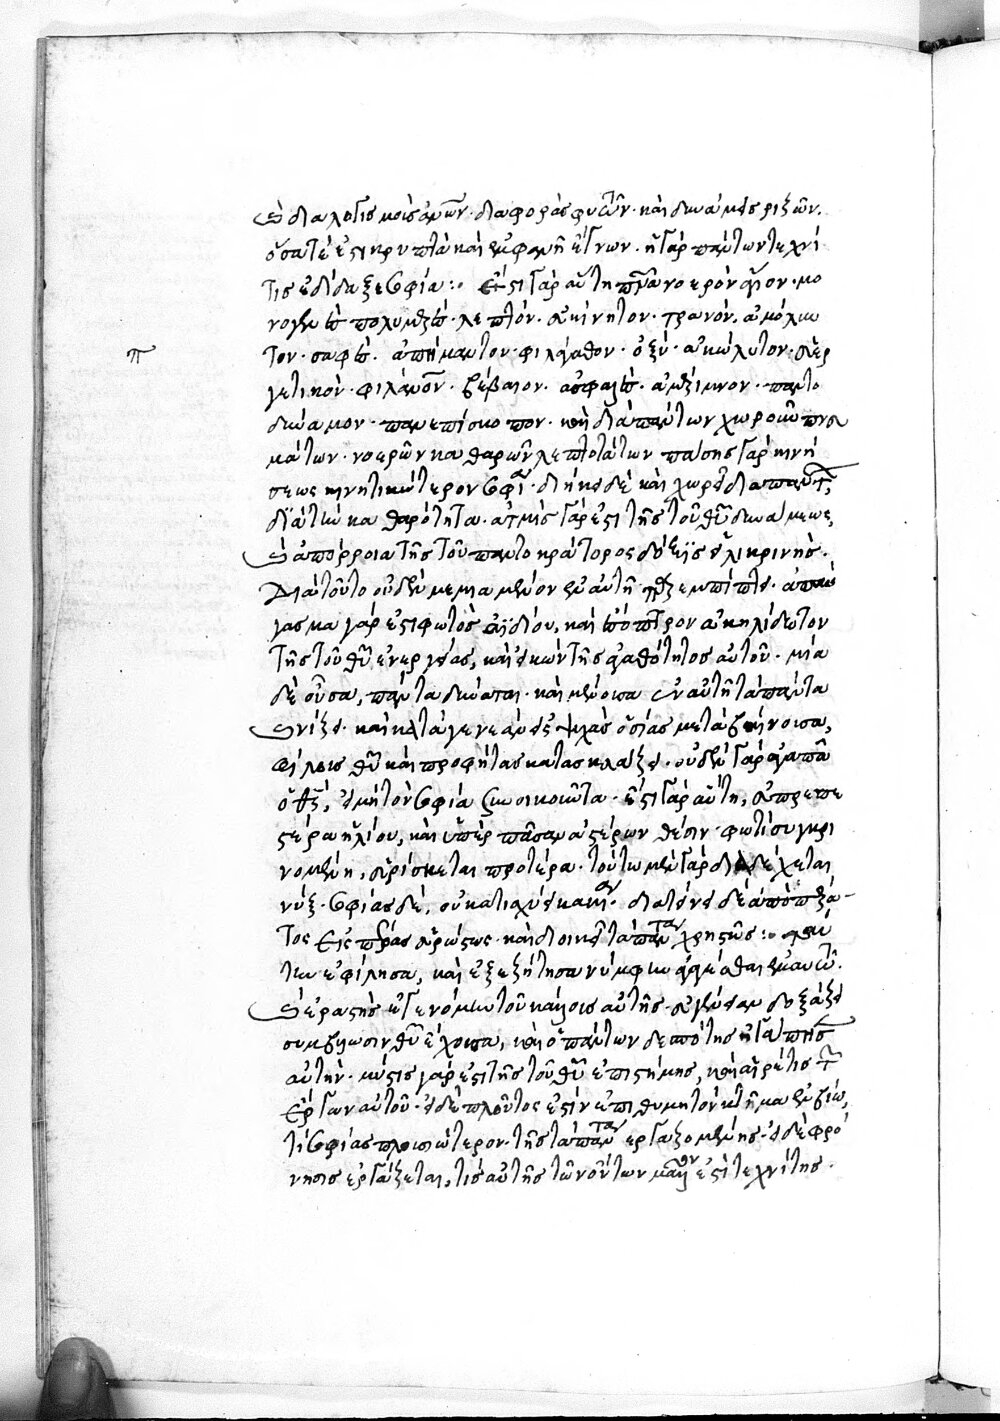 καὶ διαλογισμοὺς ἀν̅ω̅ν̅· διαφορὰς φυτῶν· καὶ δυνάμεις ῥιζῶν.
ὅσα τέ ἐστι κρυπτὰ καὶ ἐμφανῆ ἔγνων· ἡ γὰρ πάντων τεχνί
τις ἐδίδαξε σοφία: ἔστι γὰρ αὐτῇ πν̅α νοερὸν ἅγιον· μο
νογενὲς πολυμερὲς· λεπτόν· εὐκίνητον· τρανόν. ἀμόλυν
π
τον· σαφὲς. ἀπήμαντον· φιλάγαθον· ὀξύ· ἀκώλυτον· εὐερ
γετικὸν· φιλάν̅ο̅ν̅· βέβαιον. ἀσφαλὲς· ἀμέριμνον· παντο
δύναμον· πανεπίσκοπον· καὶ διὰ πάντων χωροῦν πνευ
μάτων· νοερῶν καθαρῶν λεπτοτάτων πάσης γὰρ κινή
σεως κινητικώτερον σοφία· διήκει δὲ καὶ χωρεῖ διὰ πάντων,
διὰ τὴν καθαρότητα· ἀτμὶς γάρ ἐστι τῆς τοῦ θ̅υ̅ δυνάμεως,
καὶ ἀπόρροια τῆς τοῦ παντοκράτορος δόξης εἰλικρινής.
Διὰ τοῦτο οὐδὲν μεμιαμμένον ἐν αὐτῇ παρεμπίπτει· ἀπαύ
γασμα γάρ ἐστι φωτὸς ἀϊδίου, καὶ ἔσοπτρον ἀκηλίδωτον
τῆς τοῦ θ̅υ̅ ἐνεργείας, καὶ εἰκὼν τῆς ἀγαθότητος αὐτοῦ· μία
δὲ οὖσα, πάντα δύναται· καὶ μένουσα ἐν αὐτῇ τὰ πάντα
καινίζει· καὶ κατὰ γενεὰν εἰς ψυχὰς ὁσίας μεταβαίνουσα,
φίλους θ̅υ̅ καὶ προφήτας κατασκευάζει· οὐδὲν γὰρ ἀγαπᾶ
ὁ θ̅ς̅, εἰ μὴ τὸν σοφία συνοικοῦντα· ἔστι γὰρ αὕτη, εὐπρεπε
στέρα ἡλίου, καὶ ὑπὲρ πᾶσαν ἀστέρων θέσιν· φωτὶ συγκρι
νομένη, εὑρίσκεται προτέρα· τούτω μὲν γὰρ διαδέχεται
νύξ· σοφίας δέ, οὐ κατισχύει κακία· διατείνει δὲ ἀπὸ πέρα
τος εἰς πέρας εὐρώστως· καὶ διοικεῖ τὰ πάντα χρηστῶς: ταύ
την ἐφίλησα, καὶ ἐξεζήτησα νύμφην ἀγαγέσθαι ἐμαυτῶ.
καὶ ἐραστὴς ἐγενόμην τοῦ κάλλους αὐτῆς εὐγένειαν δοξάζει
συμβίωσιν θ̅υ̅ ἔχουσα, καὶ ὁ πάντων δεσπότης ἠγάπησεν
αὐτὴν· μύστις γάρ ἐστι τῆς τοῦ θ̅υ̅ ἐπιστήμης, καὶ αἱρέτις τῶν
ἔργων αὐτοῦ· εἰ δὲ πλοῦτος ἐστὶν ἐπιθυμητὸν κτῆμα ἐν βίω,
τί σοφίας πλουσιώτερον· τῆς τὰ πάντα ἐργαζομένης· εἰ δὲ φρό
νησις ἐργάζεται, τίς αὐτῆς τῶν ὄντων μᾶλλον ἐστὶ τεχνίτης·